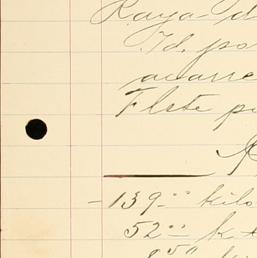 Raya d
Id. po
acarre
Flete p
139.°° kilo
52°° k